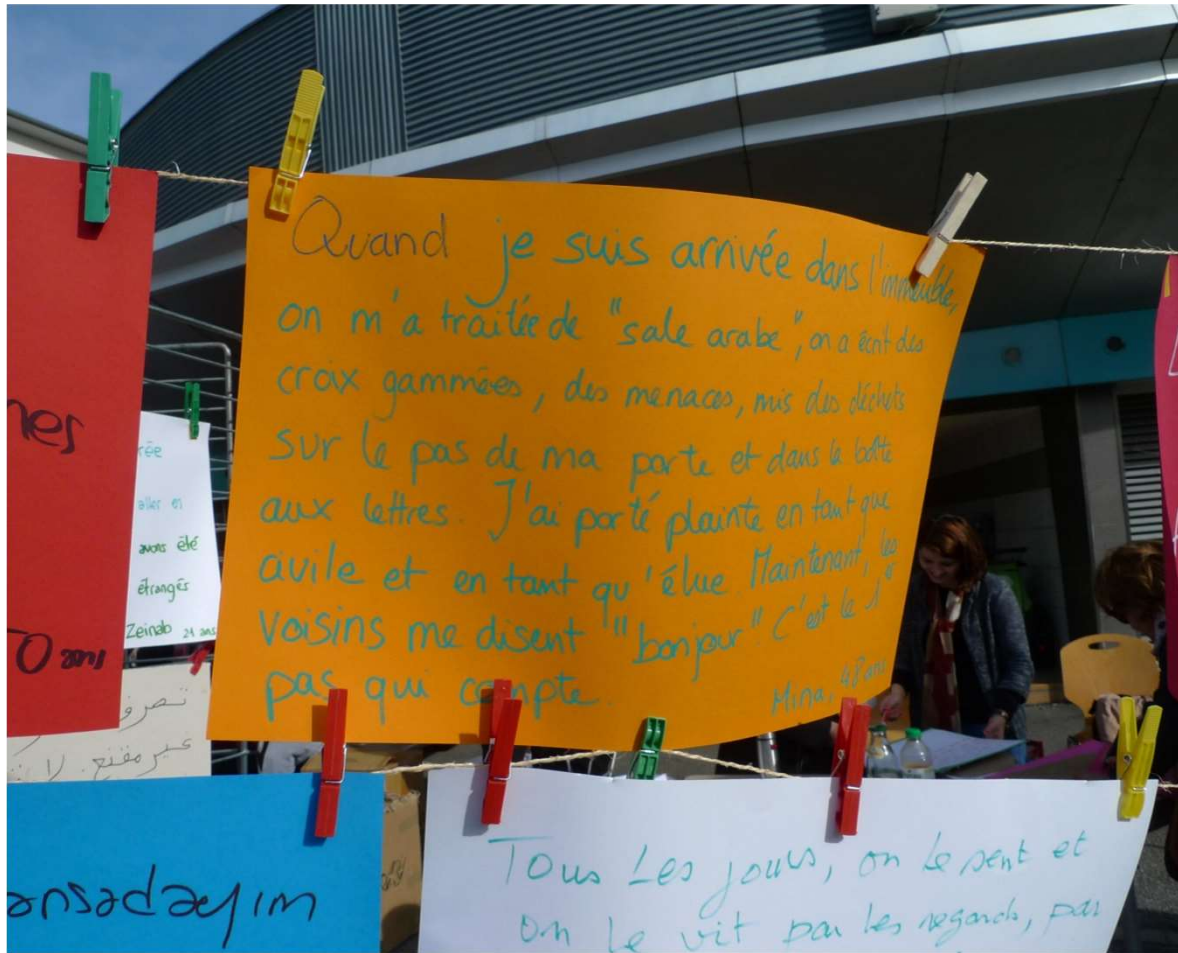 Quand je suis arrivée dans l'immeuble,
on m'a traitée de "sale arabe", on a écrit des
croix gammées, des menaces, mis des déchets
sur le pas de ma porte et dans la boîte
aux lettres. J'ai porté plainte en tant que
civile et en tant qu'élue. Maintenant, les
voisins me disent "bonjour". C'est le 1er
pas qui compte.
Mina, 48 ans
nes
0 ans
rée
aller en
avons été
étrangés
Zeinab 21 ans
غير مقتنع
ansadayım
Tous Les jours, on Le sent et
on Le vit par les regards, par